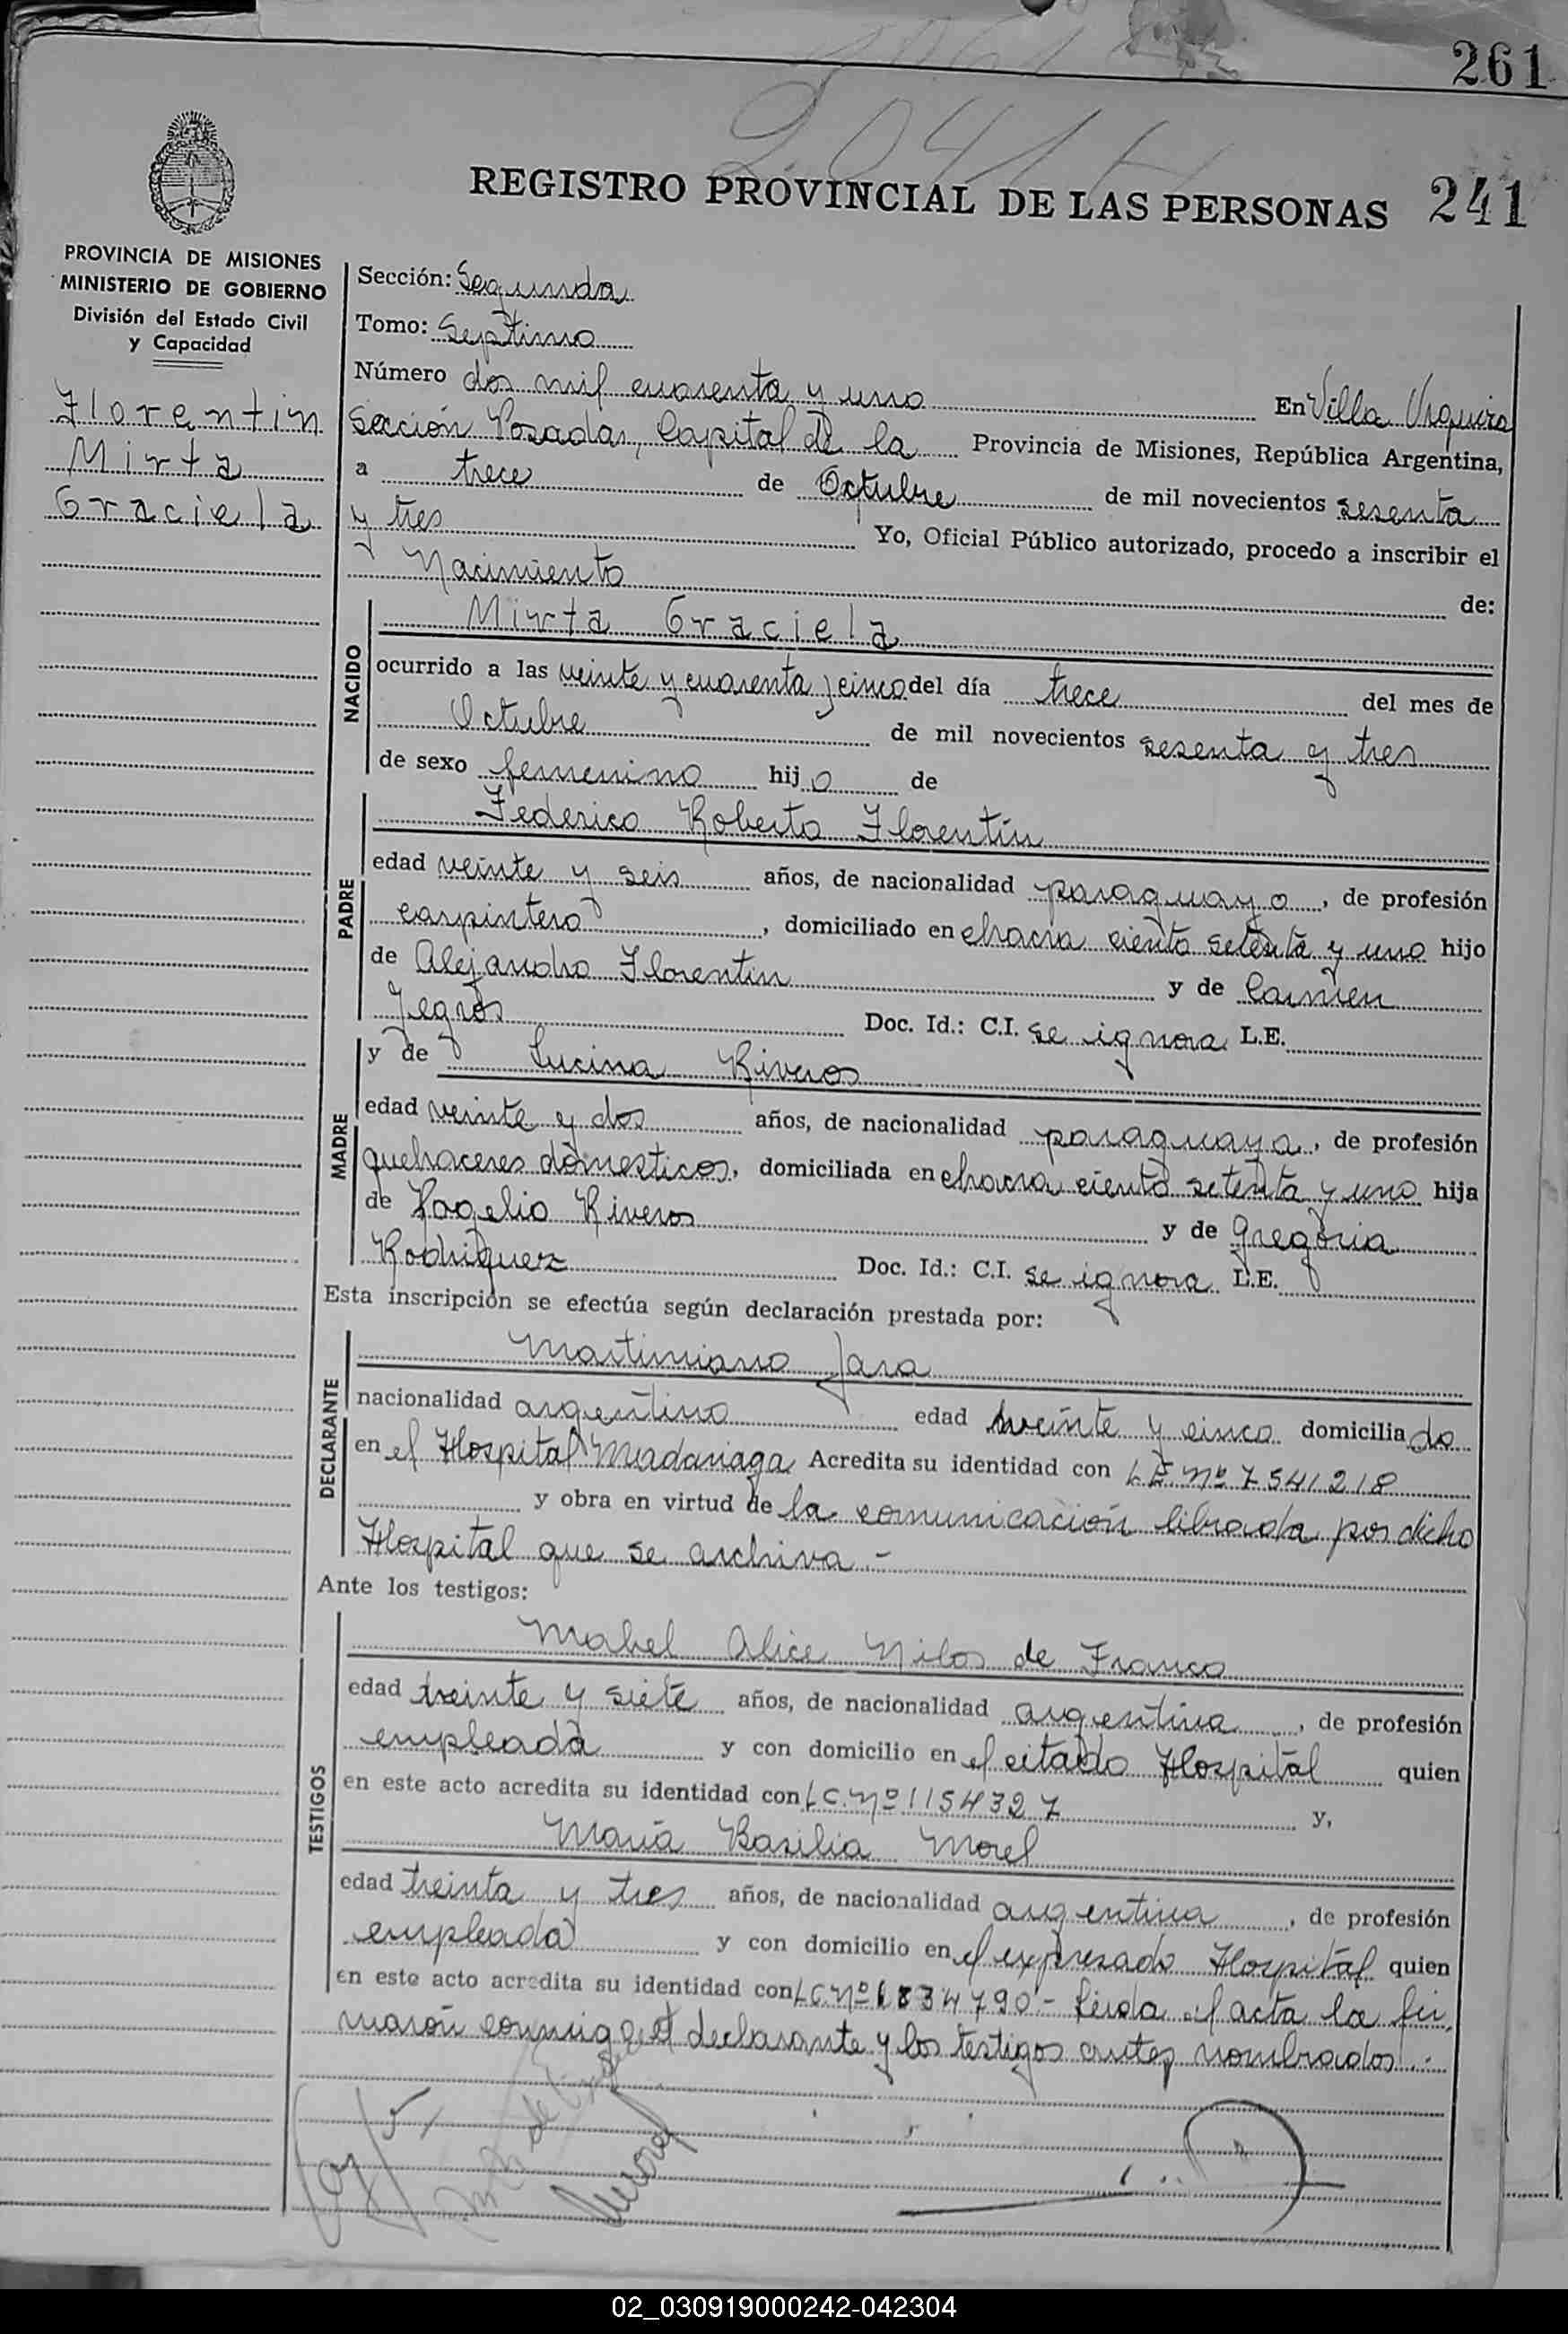 261
2041
REGISTRO PROVINCIAL DE LAS PERSONAS 241
PROVINCIA DE MISIONES
MINISTERIO DE GOBIERNO
División del Estado Civil
y Capacidad
Florentin
Mirta
Graciela
Sección: Segunda
Tomo: Septimo
Número dos mil cuarenta y uno En Villa Urquiza
Sección Posadas, Capital de la Provincia de Misiones, República Argentina,
a trece de Octubre de mil novecientos sesenta
y tres Yo, Oficial Público autorizado, procedo a inscribir el
Nacimiento de:
NACIDO
Mirta Graciela
ocurrido a las veinte y cuarenta y cinco del día trece del mes de
Octubre de mil novecientos sesenta y tres
de sexo femenino hijo de
PADRE
Federico Roberto Florentín
edad veinte y seis años, de nacionalidad paraguayo, de profesión
carpintero, domiciliado en chacra ciento setenta y uno hijo
de Alejandro Florentin y de Carmen
Jegros Doc. Id.: C.I. se ignora L.E.
MADRE
y de Lucina Riveros
edad veinte y dos años, de nacionalidad paraguaya, de profesión
quehaceres domesticos, domiciliada en chacra ciento setenta y uno hija
de Rogelio Riveros y de Gregoria
Rodriguez Doc. Id.: C.I. se ignora L.E.
Esta inscripción se efectúa según declaración prestada por:
DECLARANTE
Martimiano Jara
nacionalidad argentino edad treinte y cinco domiciliado
en el Hospital Madariaga Acredita su identidad con L.E. Nº 7541218
y obra en virtud de la comunicación librada por dicho
Hospital que se archiva.-
Ante los testigos:
TESTIGOS
Mabel Alice Nilos de Franco
edad treinte y siete años, de nacionalidad argentina, de profesión
empleada y con domicilio en el citado Hospital quien
en este acto acredita su identidad con L.C. Nº 1154327 y,
María Basilia Morel
edad treinta y tres años, de nacionalidad argentina, de profesión
empleada y con domicilio en el expresado Hospital quien
en este acto acredita su identidad con L.C. Nº 6834790.- Leida el acta la fir
marón conmigo el declarante y los testigos antes nombrados.-
Morel
02_030919000242-042304